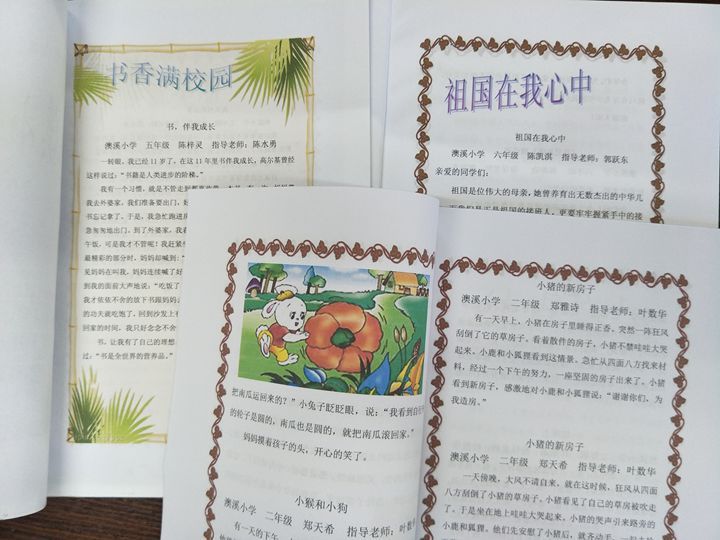 书香满校园
书，伴我成长
澳溪小学 五年级 陈梓灵 指导老师：陈水勇
一转眼，我已经11岁了，在这11年里书伴我成长，高尔基曾经
这样说过：“书籍是人类进步的阶梯。”
我有一个习惯，就是不管走到
我去外婆家，我们准备要出门，好
书忘记拿了，于是，我急忙跑进房
急匆匆地出门，到了外婆家，我看
午饭，可是我才不管呢！我赶紧
最精彩的部分时，妈妈却喊到：“
见妈妈在叫我，妈妈连续喊了好
到我的面前大声地说：“吃饭了
我才依依不舍的放下书跟妈妈
的功夫就吃饱了，回到沙发上
回家的时间，我只好念念不舍
书，让我有了自己的理想
过：“书是全世界的营养品。”
祖国在我心中
祖国在我心中
澳溪小学 六年级 陈凯淇 指导老师：郭跃东
亲爱的同学们：
祖国是位伟大的母亲，她曾养育出无数杰出的中华儿
而我们是正是祖国的接班人，更要牢牢握紧手中的接
把南瓜运回来的？”小兔子眨眨眼，说：“我看到自行
的轮子是圆的，南瓜也是圆的，就把南瓜滚回家。”
妈妈摸着孩子的头，开心的笑了。
小猴和小狗
澳溪小学 二年级 郑天希 指导老师：叶数华
小猪的新房子
澳溪小学 二年级 郑雅诗 指导老师：叶数华
有一天早上，小猪在房子里睡得正香。突然一阵狂风
刮倒了它的草房子。看着散件的房子，小猪不禁哇哇大哭
起来。小鹿和小狐狸看到这情景，急忙从四面八方找来材
料，经过一个下午的努力，一座坚固的房子出来了。小猪
看到新房子，感激地对小鹿和小狐狸说：“谢谢你们，为
我造房。”
小猪的新房子
澳溪小学 二年级 郑天希 指导老师：叶数华
一天傍晚，大风不请自来，就在这时候，狂风从四面
八方刮倒了小猪的草房子。小猪看见了自己的草房被吹走
了。于是坐在地上哇哇大哭起来。小猪的哭声引来路旁的
小鹿和狐狸。他们先安慰了小猪后，就齐动手，一起去